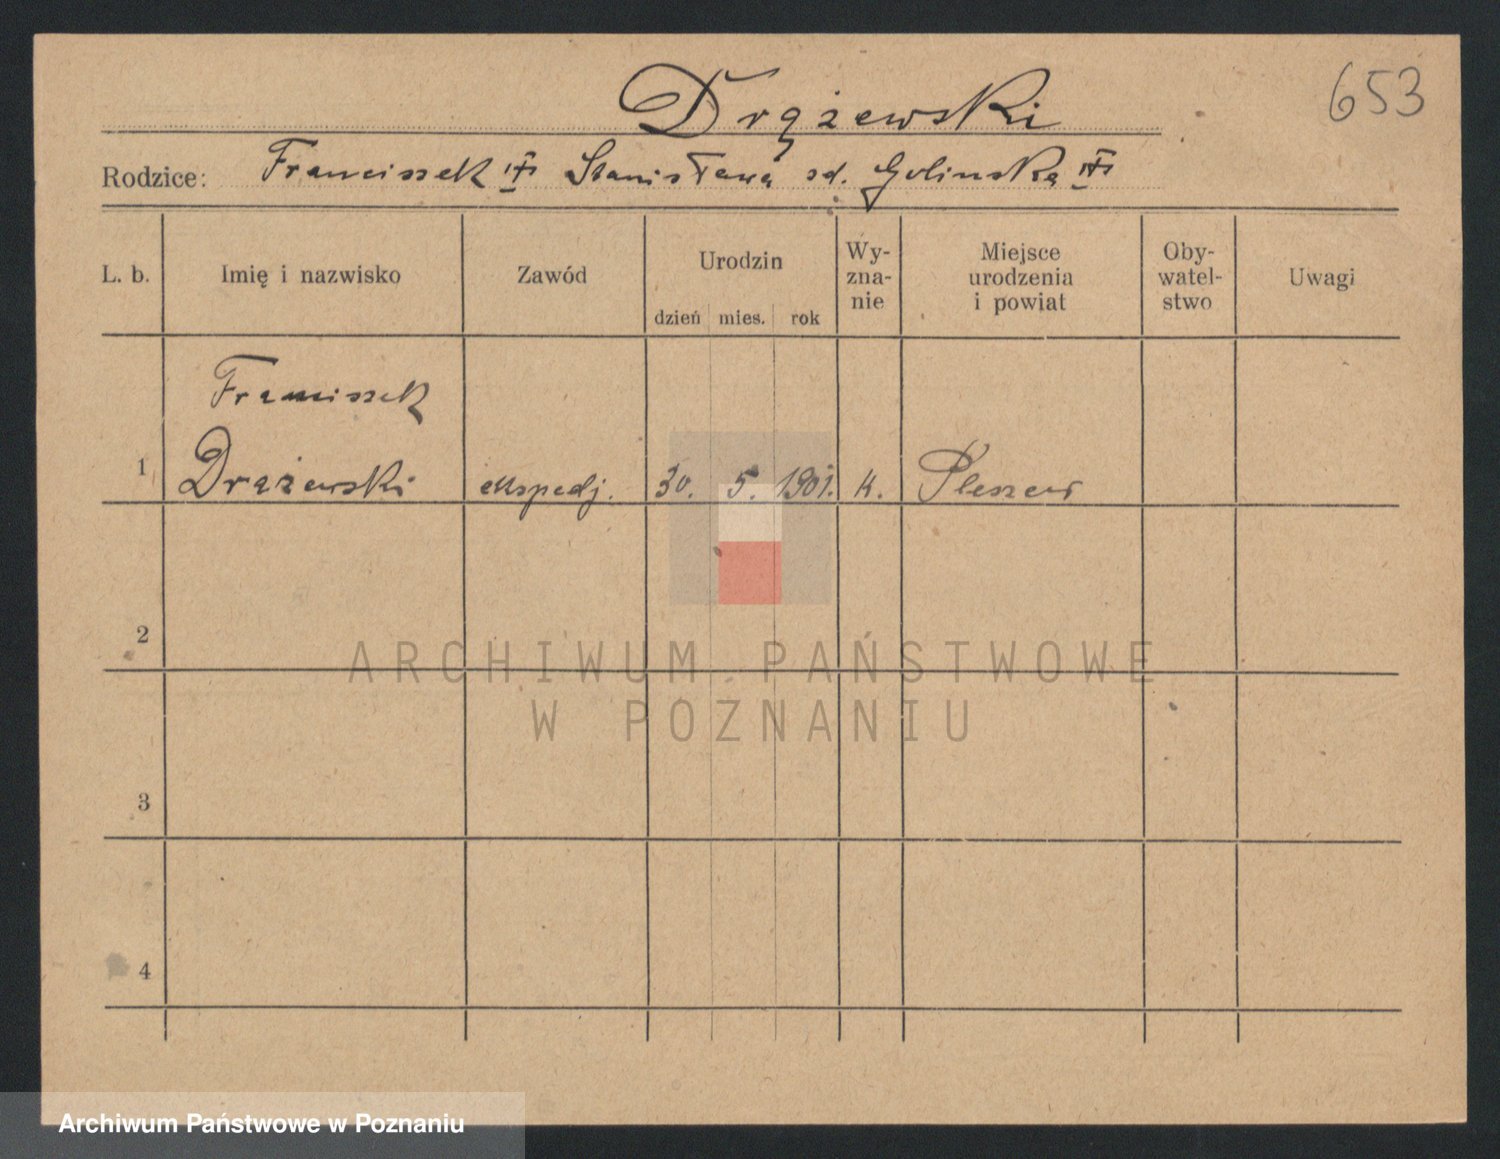 653
Drążewski
Rodzice: Franciszek Stanisława zd. Golińska
L. b. Imię i nazwisko Zawód Urodzin Wy-zna-nie Miejsce urodzenia i powiat Oby-watel-stwo Uwagi
dzień mies. rok
Franciszek
1 Drążewski ekspedj. 30. 5. 1901. k. Pleszew
2
ARCHIWUM PAŃSTWOWE
W POZNANIU
3
4
Archiwum Państwowe w Poznaniu